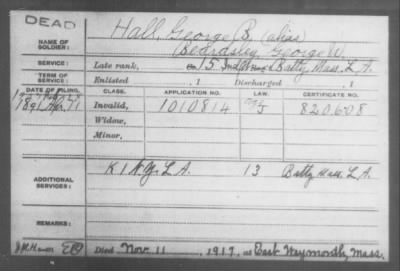 DEAD
NAME OF SOLDIER: Hall, George B. (alias)
Beardsley, George
SERVICE: Late rank, 15 Ind Batty, Mass. L. A.
TERM OF SERVICE: Enlisted , 1 Discharged , 1
DATE OF FILING. CLASS. APPLICATION NO. LAW. CERTIFICATE NO.
1891 Apr 1 Invalid, 1010814 820608
Widow,
Minor,
ADDITIONAL SERVICES: K 1 N.Y. L. A. 13 Batty Mass. L. A.
REMARKS:
Died Nov. 11, 1917, at East Weymouth, Mass.